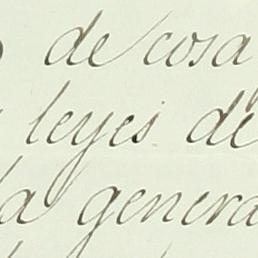 de cosa
leyes de
la genera